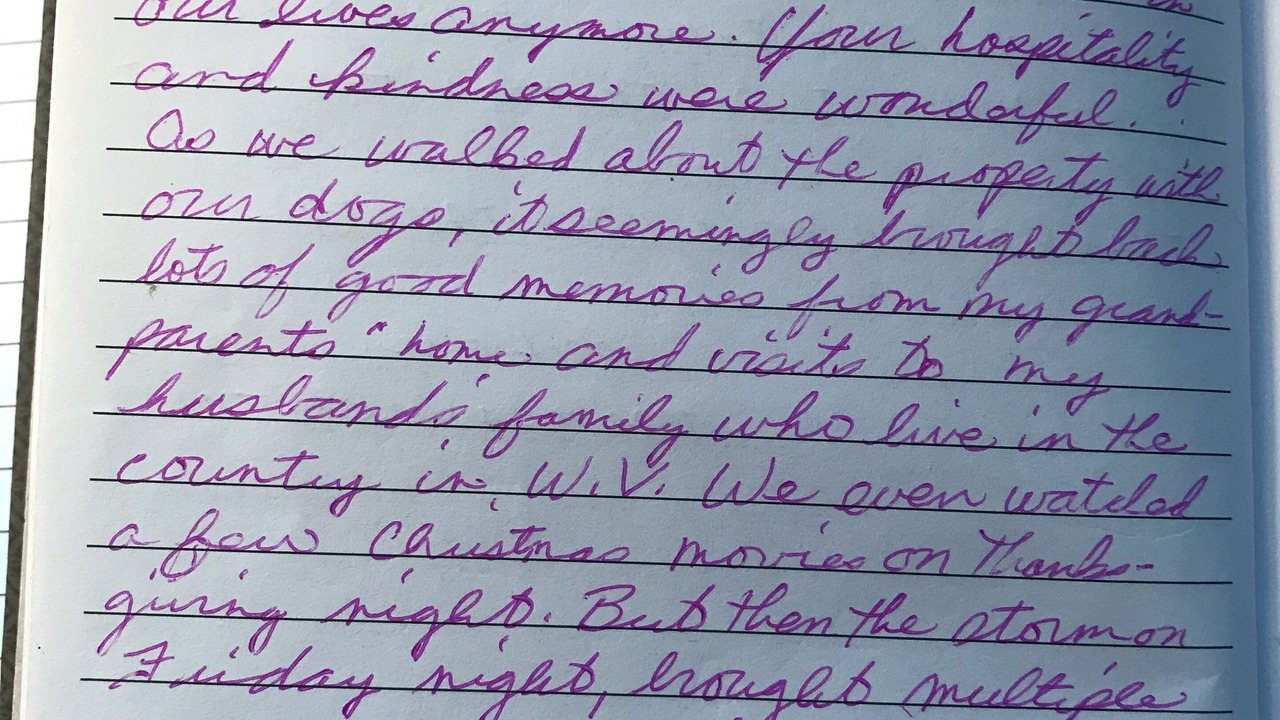 our lives anymore. Your hospitality
and kindness were wonderful.
As we walked about the property with
our dogs, it seemingly brought back
lots of good memories from my grand-
parents" home and visits to my
husband's family who live in the
country in W.V. We even watched
a few Christmas movies on Thanks-
giving night. But then the storm on
Friday night, brought multiple